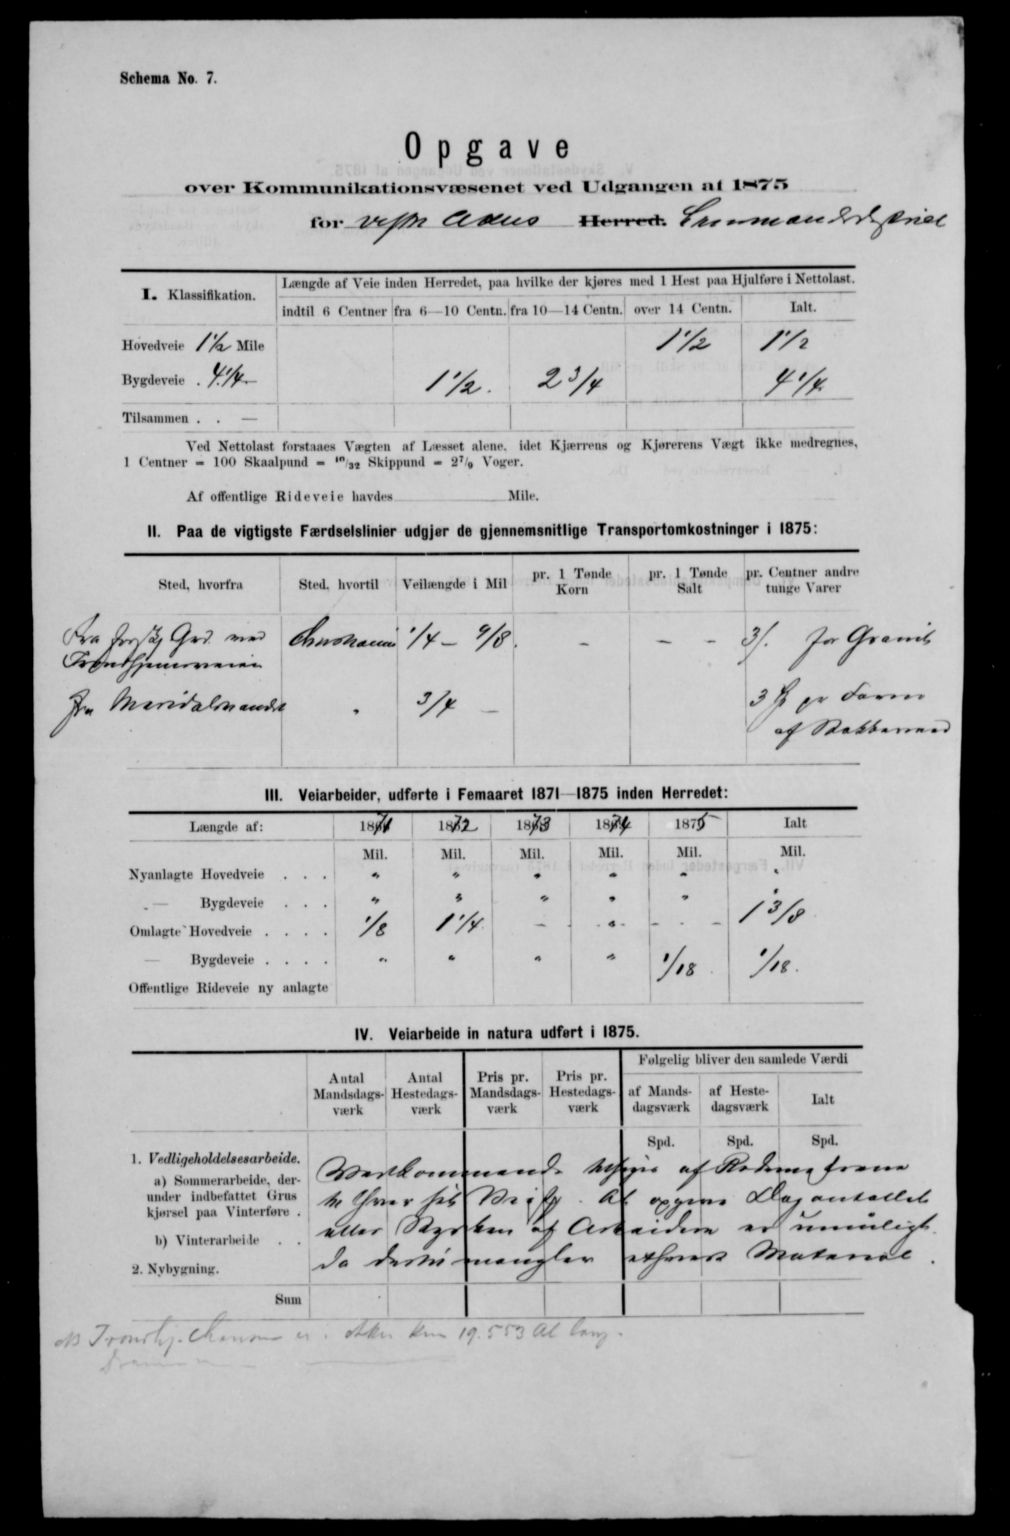 Schema No. 7.
Opgave
over Kommunikationsvæsenet ved Udgangen af 1875
for Herred.
I. Klassifikation.
Længde af Veie inden Herredet, paa hvilke der kjøres med 1 Hest paa Hjulføre i Nettolast.
indtil 6 Centner fra 6—10 Centn. fra 10—14 Centn. over 14 Centn. Ialt.
Hovedveie 1½ Mile 1½ 1½
Bygdeveie . 4¼ — 1½. 2¾ 4¼
Tilsammen . . —
Ved Nettolast forstaaes Vægten af Læsset alene, idet Kjærrens og Kjørerens Vægt ikke medregnes,
1 Centner = 100 Skaalpund = ¹⁰/₃₂ Skippund = 2⁷/₉ Voger.
Af offentlige Rideveie havdes Mile.
II. Paa de vigtigste Færdselslinier udgjør de gjennemsnitlige Transportomkostninger i 1875:
Sted, hvorfra Sted, hvortil Veilængde i Mil pr. 1 Tønde Korn pr. 1 Tønde Salt pr. Centner andre tunge Varer
Fra Grd ved 1/4 — 9/8. – – – for Granit
Trondhjemsveien
Fra Maridalsvandet " 3/4 — 3 pr Favn
af
III. Veiarbeider, udførte i Femaaret 1871—1875 inden Herredet:
Længde af: 1871 1872 1873 1874 1875 Ialt
Mil. Mil. Mil. Mil. Mil. Mil.
Nyanlagte Hovedveie . . . " " " " " "
— Bygdeveie . . . " " " " " "
Omlagte Hovedveie . . . . 1/8 1 1/4 – " – – – 1 3/8
— Bygdeveie . . . . " " " " 1/18 1/18.
Offentlige Rideveie ny anlagte
IV. Veiarbeide in natura udført i 1875.
Følgelig bliver den samlede Værdi
Antal Mandsdagsværk Antal Hestedagsværk Pris pr. Mandsdagsværk Pris pr. Hestedagsværk af Mandsdagsværk af Hestedagsværk Ialt
Spd. Spd. Spd.
1. Vedligeholdelsesarbeide.
a) Sommerarbeide, derunder indbefattet Gruskjørsel paa Vinterføre .
b) Vinterarbeide . .
2. Nybygning.
Vedkommende af Roderne
hver sit . At opgive Dagantallet
eller Styrken af Arbeidere er umuligt
da dertil mangler ethvert Material.
Sum
19.553 Al lang.